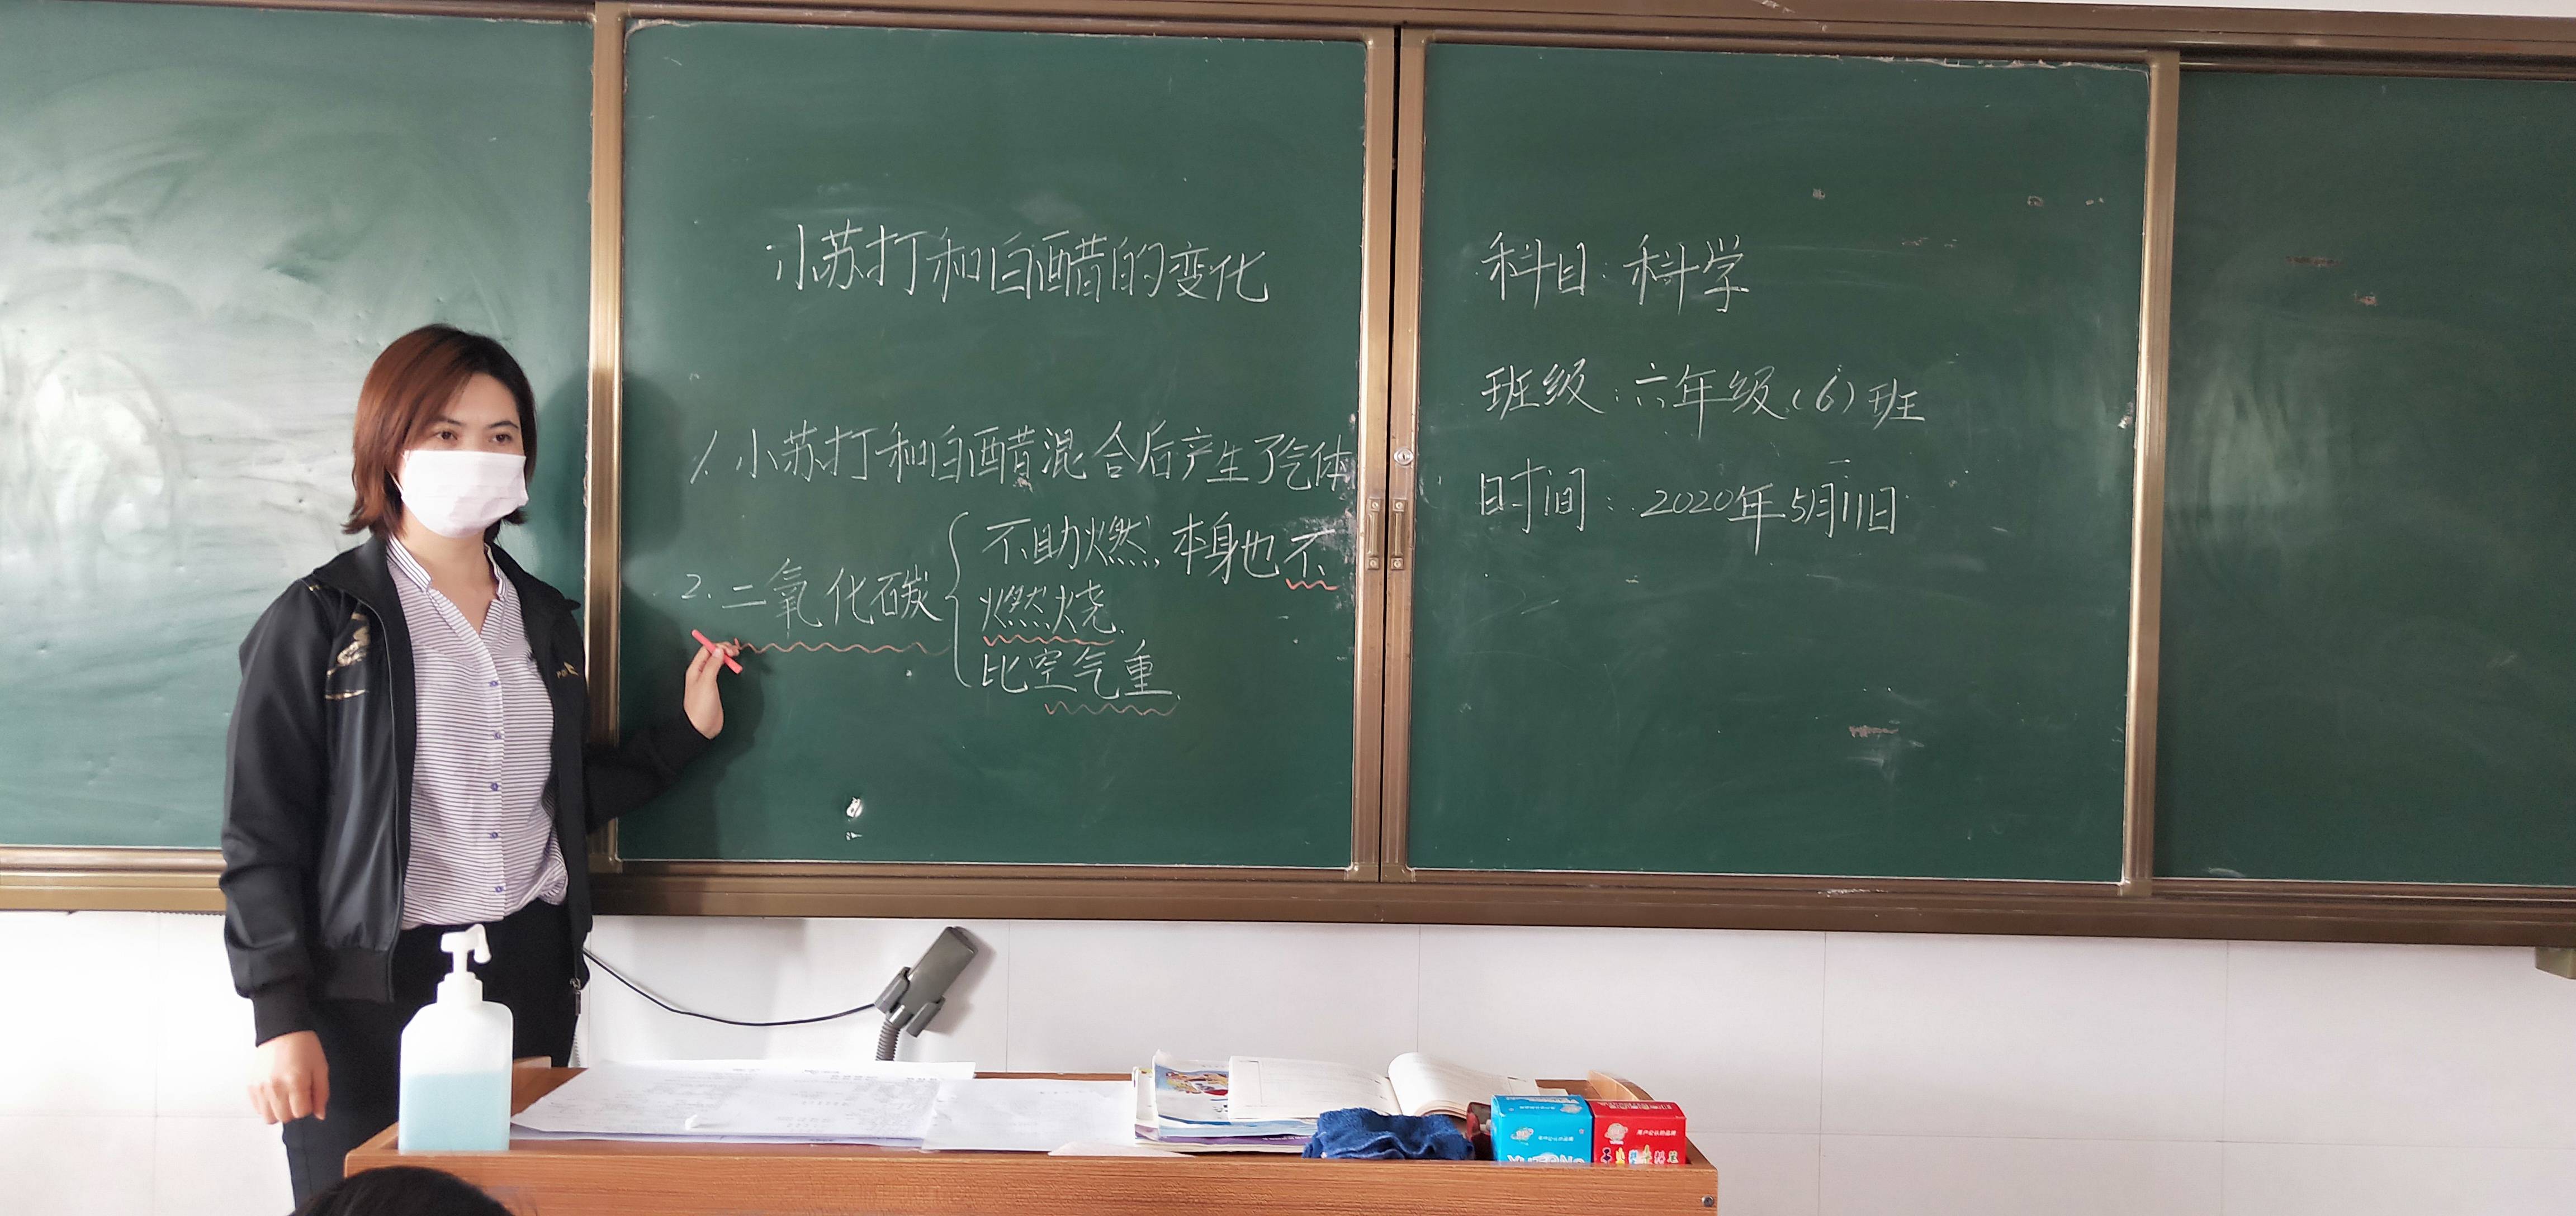 小苏打和白醋的变化
1. 小苏打和白醋混合后产生了气体
2. 二氧化碳
不助燃，本身也不
燃烧.
比空气重.
科目：科学
班级：六年级（6）班
时间：2020年5月11日